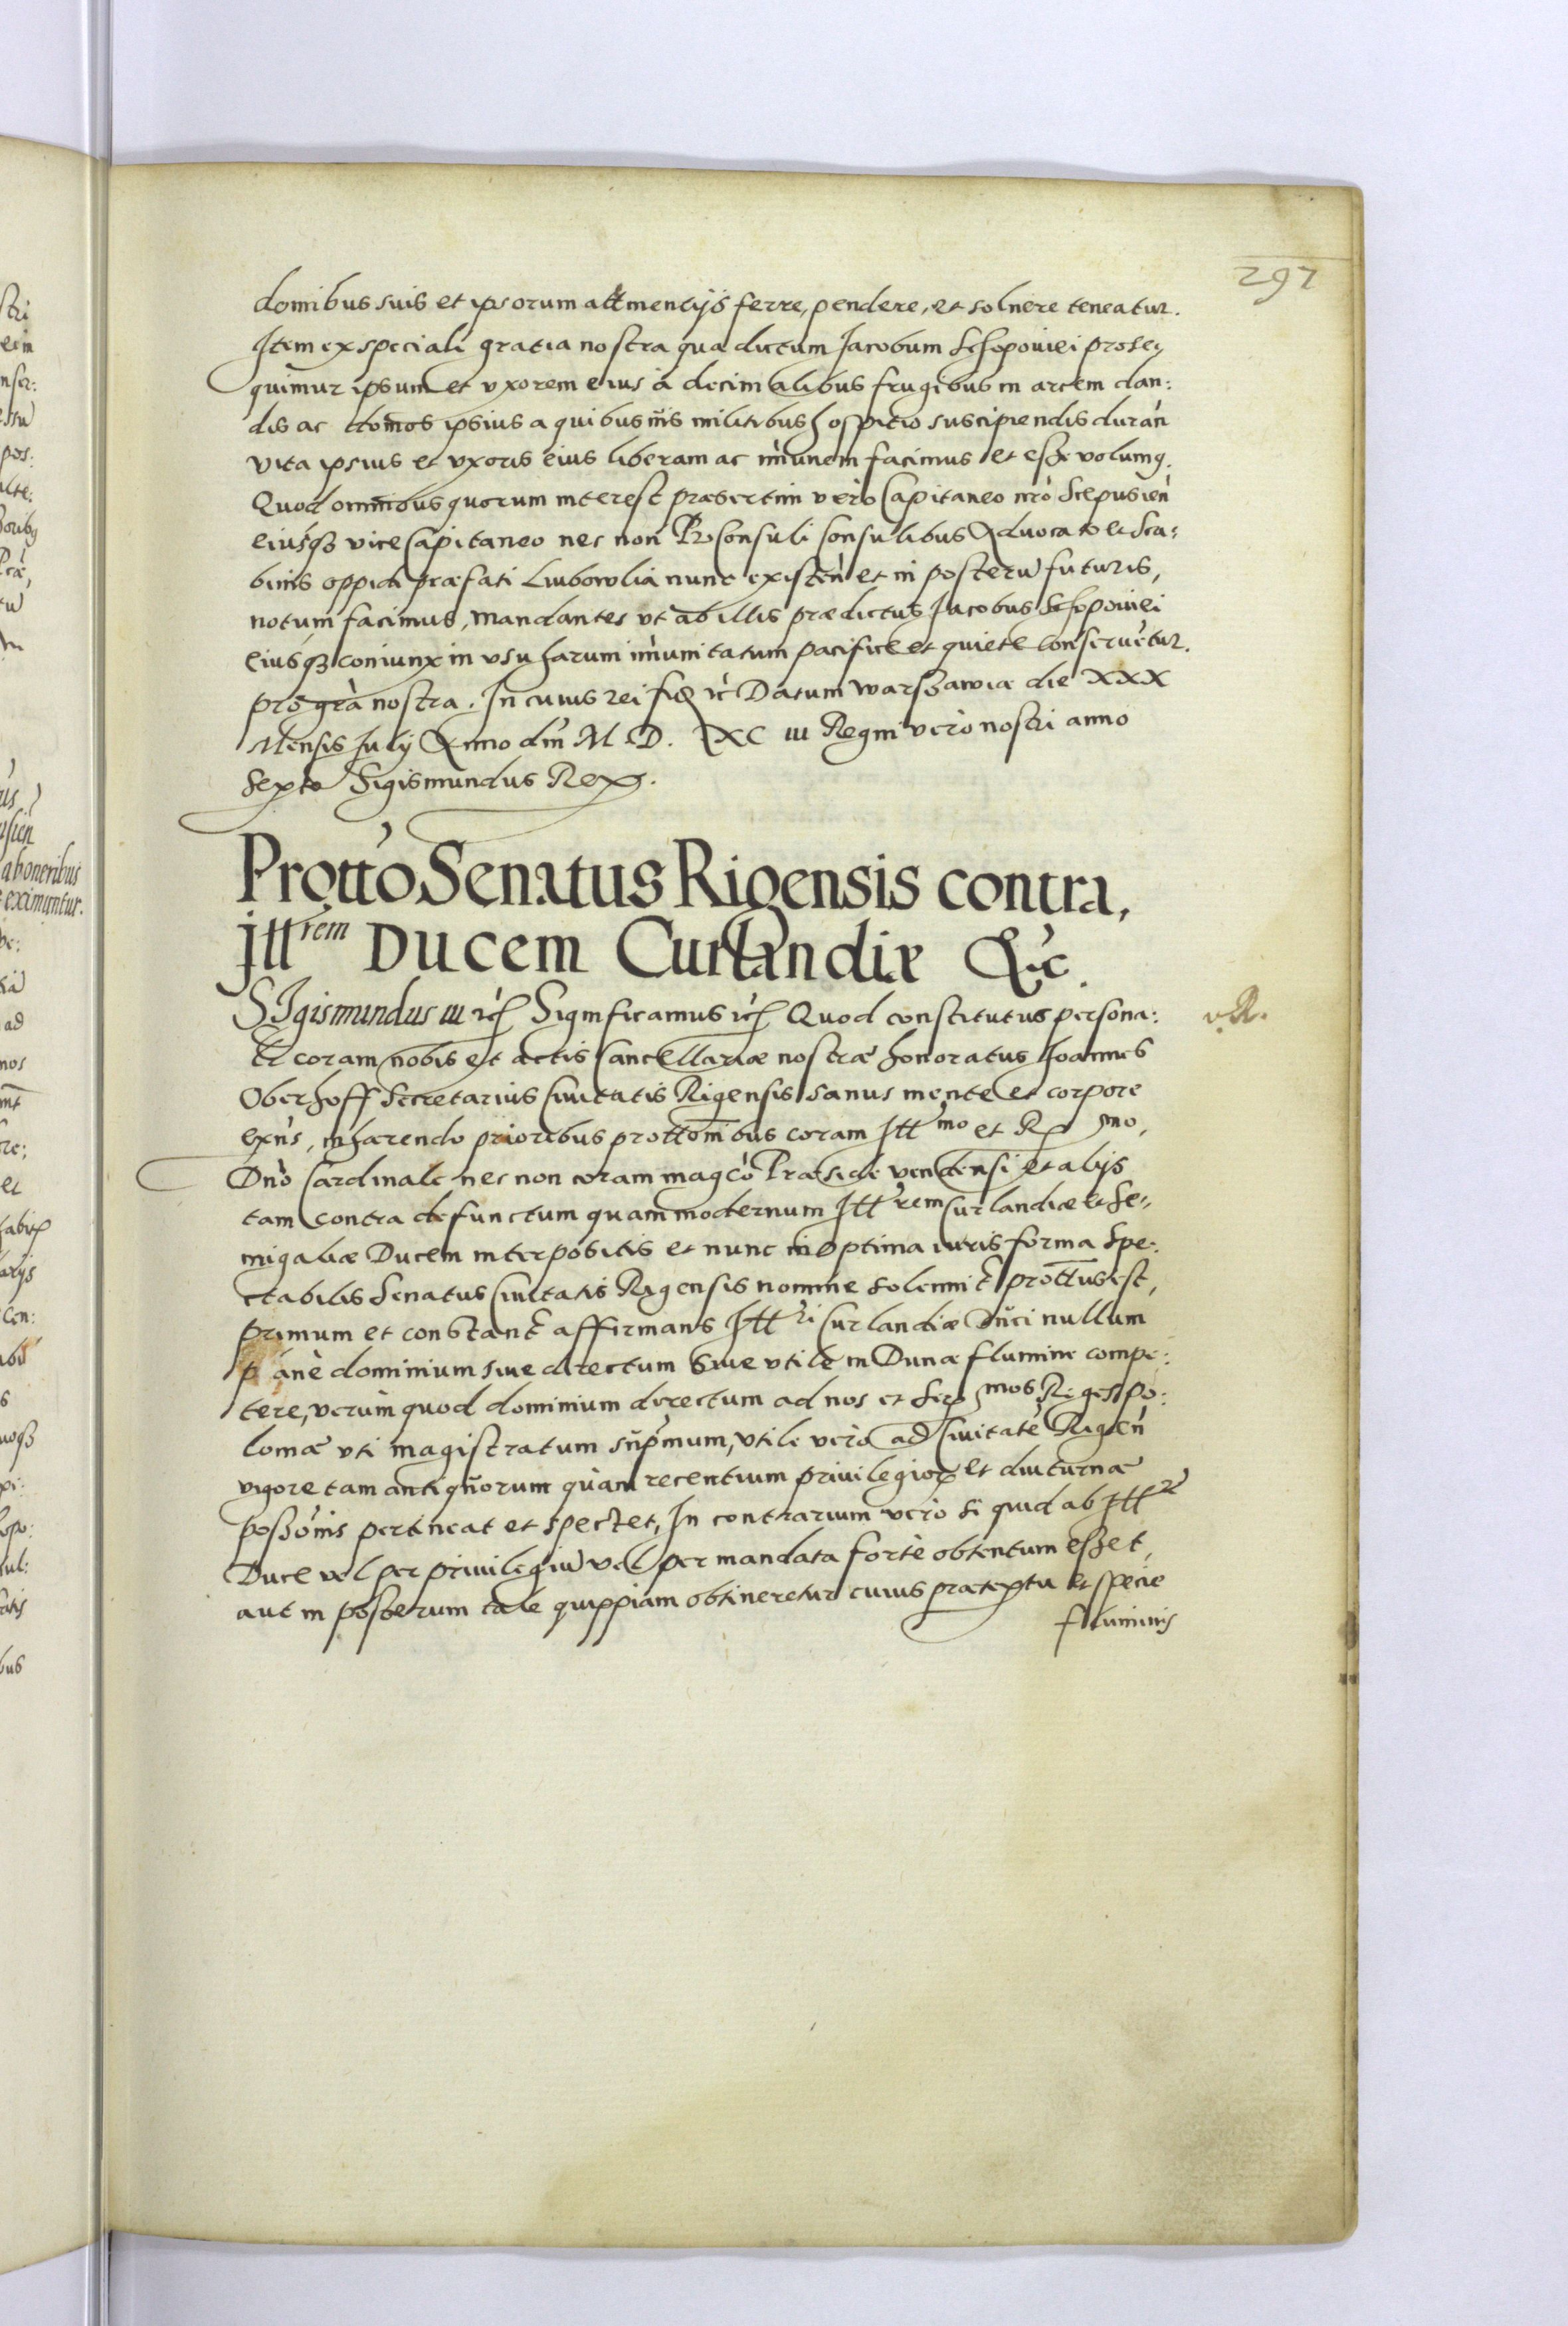 297
domibus suis et ipsorum attinentijs ferre, pendere, et soluere teneatur.
Item ex speciali gratia nostra qua dictum Jacobum Schopoviei prose,
quimur ipsum et vxorem eius à decimalibus frugibus in arcem dan:
dis ac domos ipsius a quibusuis militibus hospitio suscipiendis durañ
vita ipsius et vxoris eius liberam ac im̃unem facimus et esse volumꝰ.
Quod omnibus quorum interest præsertim verò Capitaneo nrõ Scepusieñ
eiusqꝫ vice Capitaneo nec non Proconsuli Consulibus Aduocato et Sca:
binis oppidi præfati Liubowlia nunc existeñ et in posterũ futuris,
notum facimus, mandantes vt ab illis prædictus Jacobus Schopoviei
eiusqꝫ coniunx in vsu harum im̃unitatum pacifice et quiete conseruetur.
pro grã nostra. In cuius rei fidẽ rc̃ Datum Warszawiæ die XXX
Mensis Julij Anno dñi M. D. XC iii Regni vero nostri anno
Sexto Sigismundus Rex.
Prottõ Senatus Rigensis contra,
Jllrem Ducem Curlandiæ &c.
SIgismundus iii rc̃ Significamus rc̃ Quod constitutus persona:
ter coram nobis et actis Cancellariæ nostræ honoratus Joannes
Oberhoff Secretarius Ciuitatis Rigensis sanus mente et corpore
exñs, inhærendo prioribus prottõnibus coram Jllmo et Rmo,
Dnõ Cardinale nec non coram magcõ Præside Vendensi et alijs
tam contra defunctum quam modernum Jllrem Curlandiæ et Se:
migaliæ Ducem interpositis et nunc in optima iuris forma Spe:
ctabilis Senatus Ciuitatis Rigensis nomine solennit̃ prottũs est,
primum et constant̃ affirmans Jllri Curlandiæ Duci nullum
planè dominium siue directum siue vtile in Dunæ flumine compe:
tere, verùm quod dominium directum ad nos et Sermos Reges Po:
loniæ vti magistratum sup̃mum, vtile verò ad Ciuitatẽ Rigeñ
vigore tam antiquorum quàm recentium priuilegiorꝫ et diuturnæ
possõnis pertineat et spectet, In contrarium verò si quid ab Jllre
Duce vel per priuilegiũ vel per mandata fortè obtentum esset,
aut in posterum tale quippiam obtineretur cuius prætextu et specie
fluminis